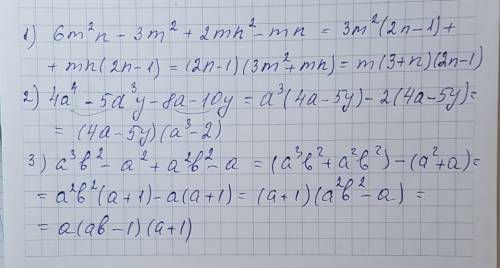 1) 6m²n - 3m² + 2mn² - mn = 3m²(2n-1)+
+ mn(2n-1) = (2n-1)(3m²+mn) = m(3+n)(2n-1)
2) 4a⁴ - 5a³y - 8a - 10y = a³(4a-5y)-2(4a-5y)=
= (4a-5y)(a³-2)
3) a³b² - a² + a²b² - a = (a³b² + a²b²) - (a²+a) =
= a²b²(a+1) - a(a+1) = (a+1)(a²b² - a) =
= a(ab-1)(a+1)